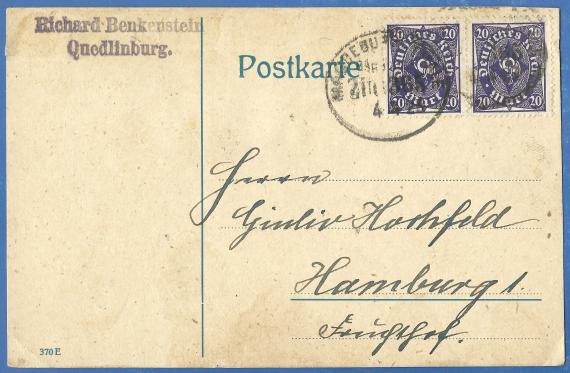 Richard Benkenstein
Quedlinburg.
Postkarte
20 Deutsches Reich 20
20 Mark 20
20 Deutsches Reich 20
20 Mark 20
Herrn
Giulio Hochfeld
Hamburg 1.
Fruchthof.
370 E